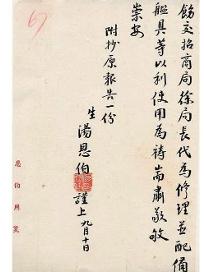 飭交招商局徐局長代為修理並配備
艦具等以利使用為禱耑肅敬頌
崇安
附抄原報告一份
生湯恩伯謹上九月十日
恩伯用箋